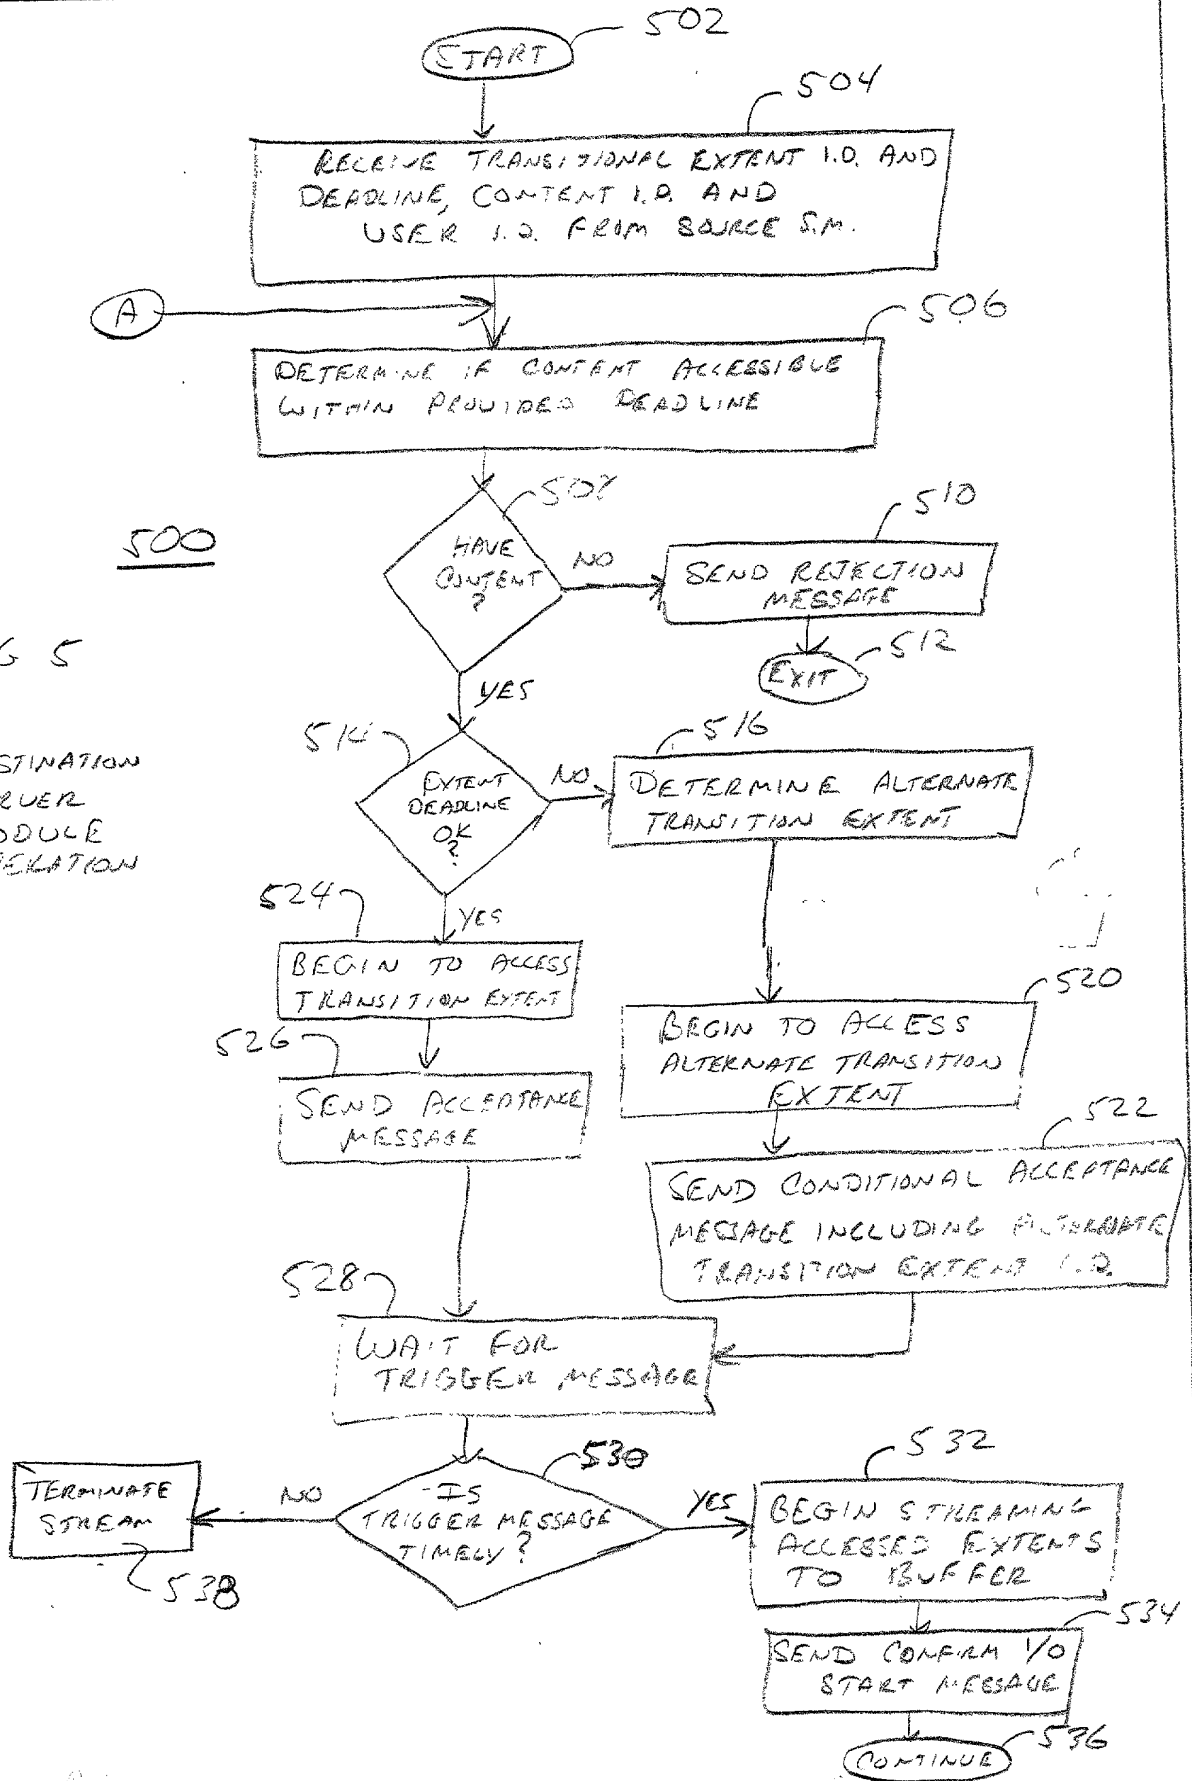 502
START
504
RECEIVE TRANSITIONAL EXTENT I.D. AND
DEADLINE, CONTENT I.D. AND
USER I.D. FROM SOURCE S.M.
A
506
DETERMINE IF CONTENT ACCESSIBLE
WITHIN PROVIDED DEADLINE
508
500
HAVE
CONTENT
?
NO
510
SEND REJECTION
MESSAGE
512
EXIT
YES
G 5
STINATION
RVER
ODULE
ERATION
514
EXTENT
DEADLINE
OK
?
NO
516
DETERMINE ALTERNATE
TRANSITION EXTENT
YES
524
BEGIN TO ACCESS
TRANSITION EXTENT
520
BEGIN TO ACCESS
ALTERNATE TRANSITION
EXTENT
526
SEND ACCEPTANCE
MESSAGE
522
SEND CONDITIONAL ACCEPTANCE
MESSAGE INCLUDING ALTERNATE
TRANSITION EXTENT I.D.
528
WAIT FOR
TRIGGER MESSAGE
530
IS
TRIGGER MESSAGE
TIMELY?
NO
TERMINATE
STREAM
538
YES
532
BEGIN STREAMING
ACCESSED EXTENTS
TO BUFFER
534
SEND CONFIRM I/O
START MESSAGE
536
CONTINUE